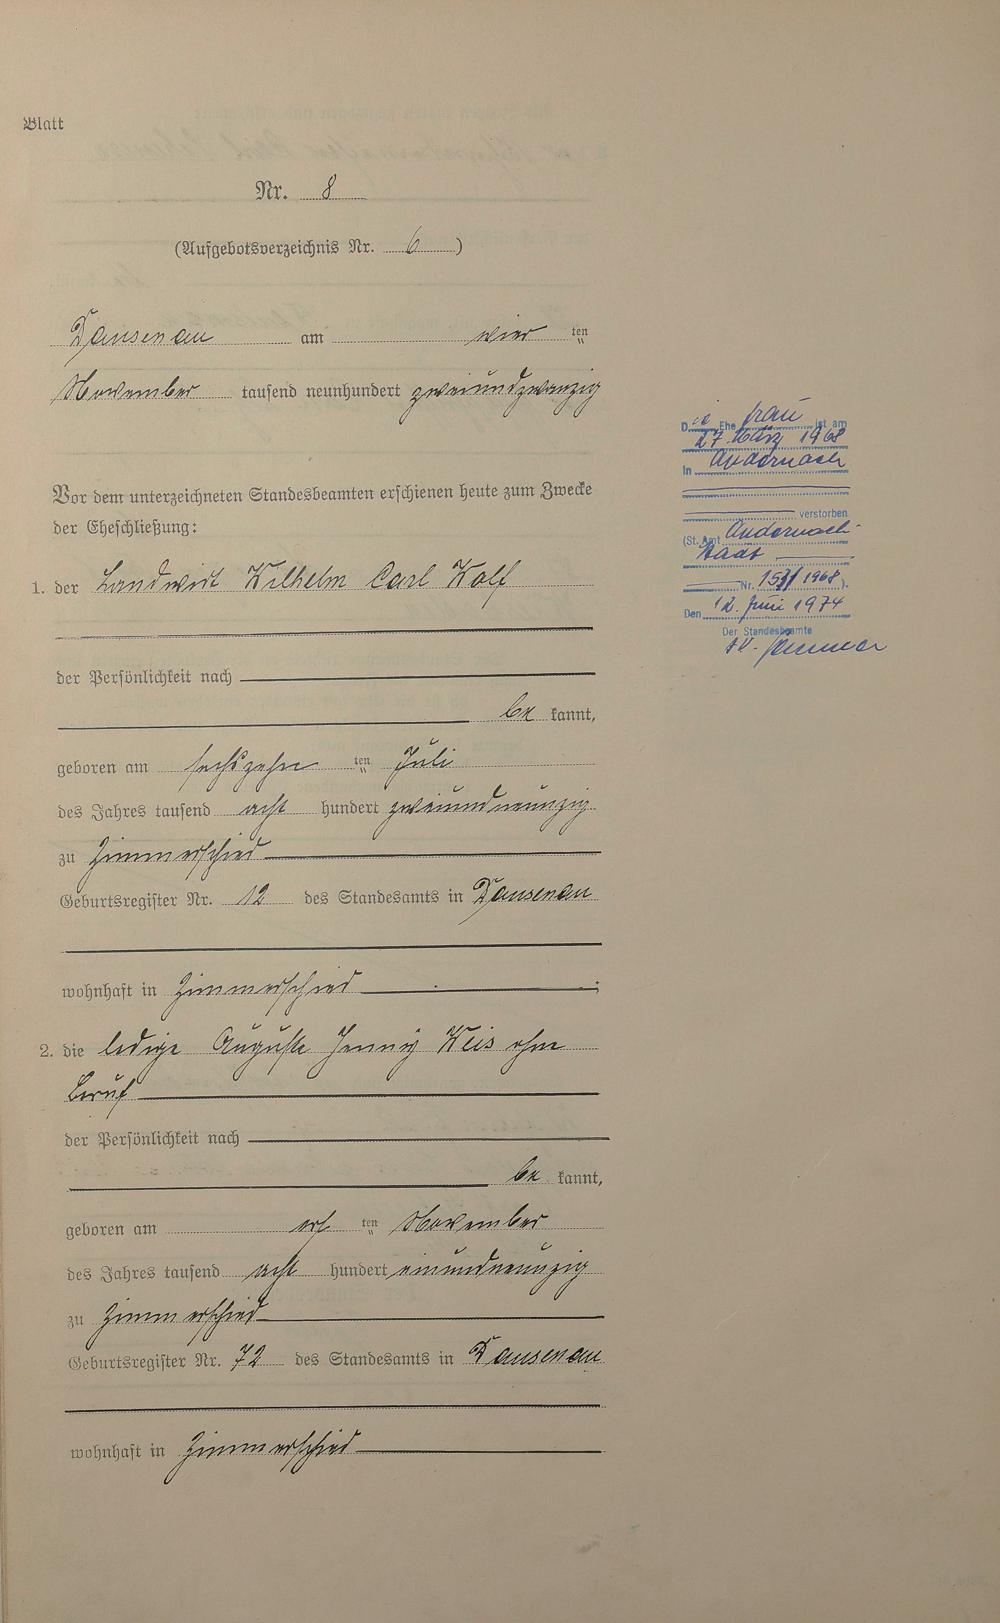 Blatt
Nr. 8
(Aufgebotsverzeichnis Nr. 6)
Dausenau am vier ten
November tausend neunhundert zweiundzwanzig
Vor dem unterzeichneten Standesbeamten erschienen heute zum Zwecke
der Eheschließung:
1. der Landwirt Wilhelm Carl Wolf
der Persönlichkeit nach
be kannt,
geboren am sechszehn ten Juli
des Jahres tausend acht hundert zweiundneunzig
zu Zimmerschied
Geburtsregister Nr. 12 des Standesamts in Dausenau
wohnhaft in Zimmerschied ;
2. die ledige Auguste Jenny Weis ohne
Beruf
der Persönlichkeit nach
be kannt,
geboren am ers ten November
des Jahres tausend acht hundert einundneunzig
zu Zimmerschied
Geburtsregister Nr. 72 des Standesamts in Dausenau
wohnhaft in Zimmerschied
Die Ehefrau ist am
27. März 1968
in Andernach
verstorben
(St. Amt Andernach-
Stadt
Nr. /1968).
Den 12. Juni 1974
Der Standesbeamte